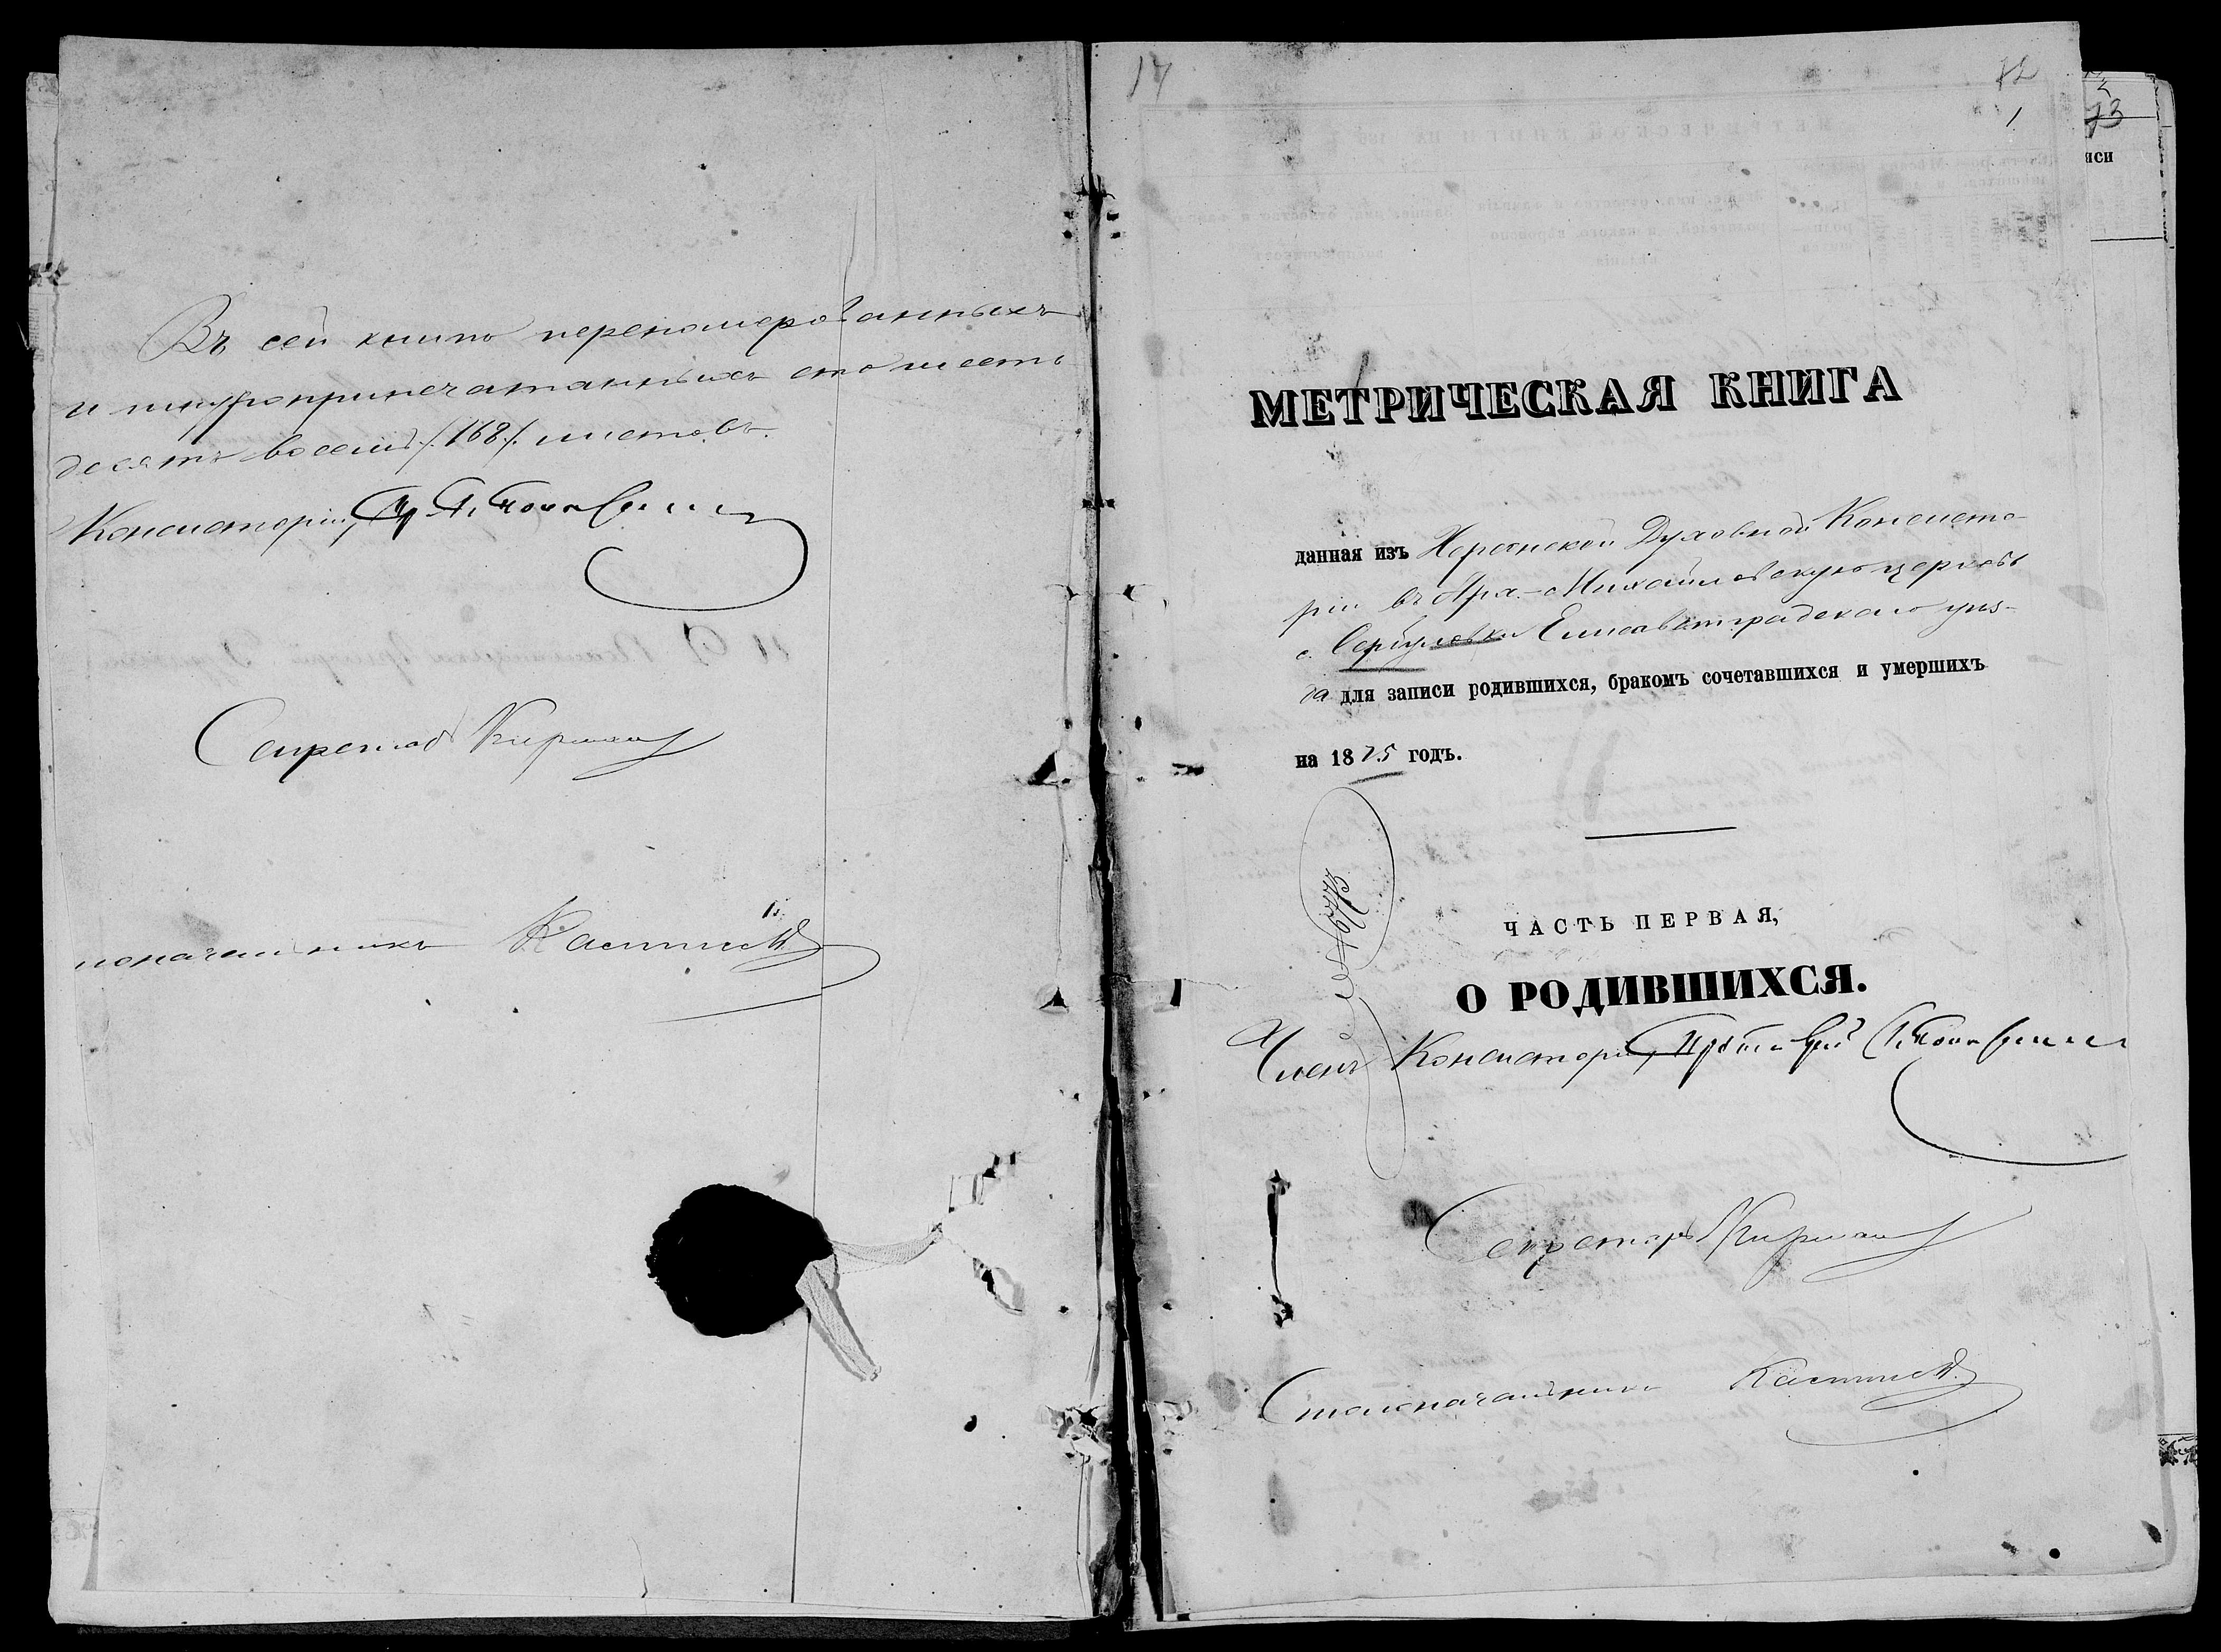 Въ сей книгѣ переномерованныхъ
и шнуроприпечатанныхъ сто шесть
десятъ восемь /168/. листовъ.
Консисторіи,
Секретарь
поначальникъ
17
72
1
73
иси
МЕТРИЧЕСКАЯ КНИГА
данная изъ Херсонской Духовной Консисто-
ріи въ Арх.-Михайловскую церковь
с. Елисаветградскаго уѣз-
да для записи родившихся, бракомъ сочетавшихся и умершихъ
на 1875 годъ.
ЧАСТЬ ПЕРВАЯ,
О РОДИВШИХСЯ.
Членъ Консисторіи, Протоіерей
Секретарь
Столоначальникъ